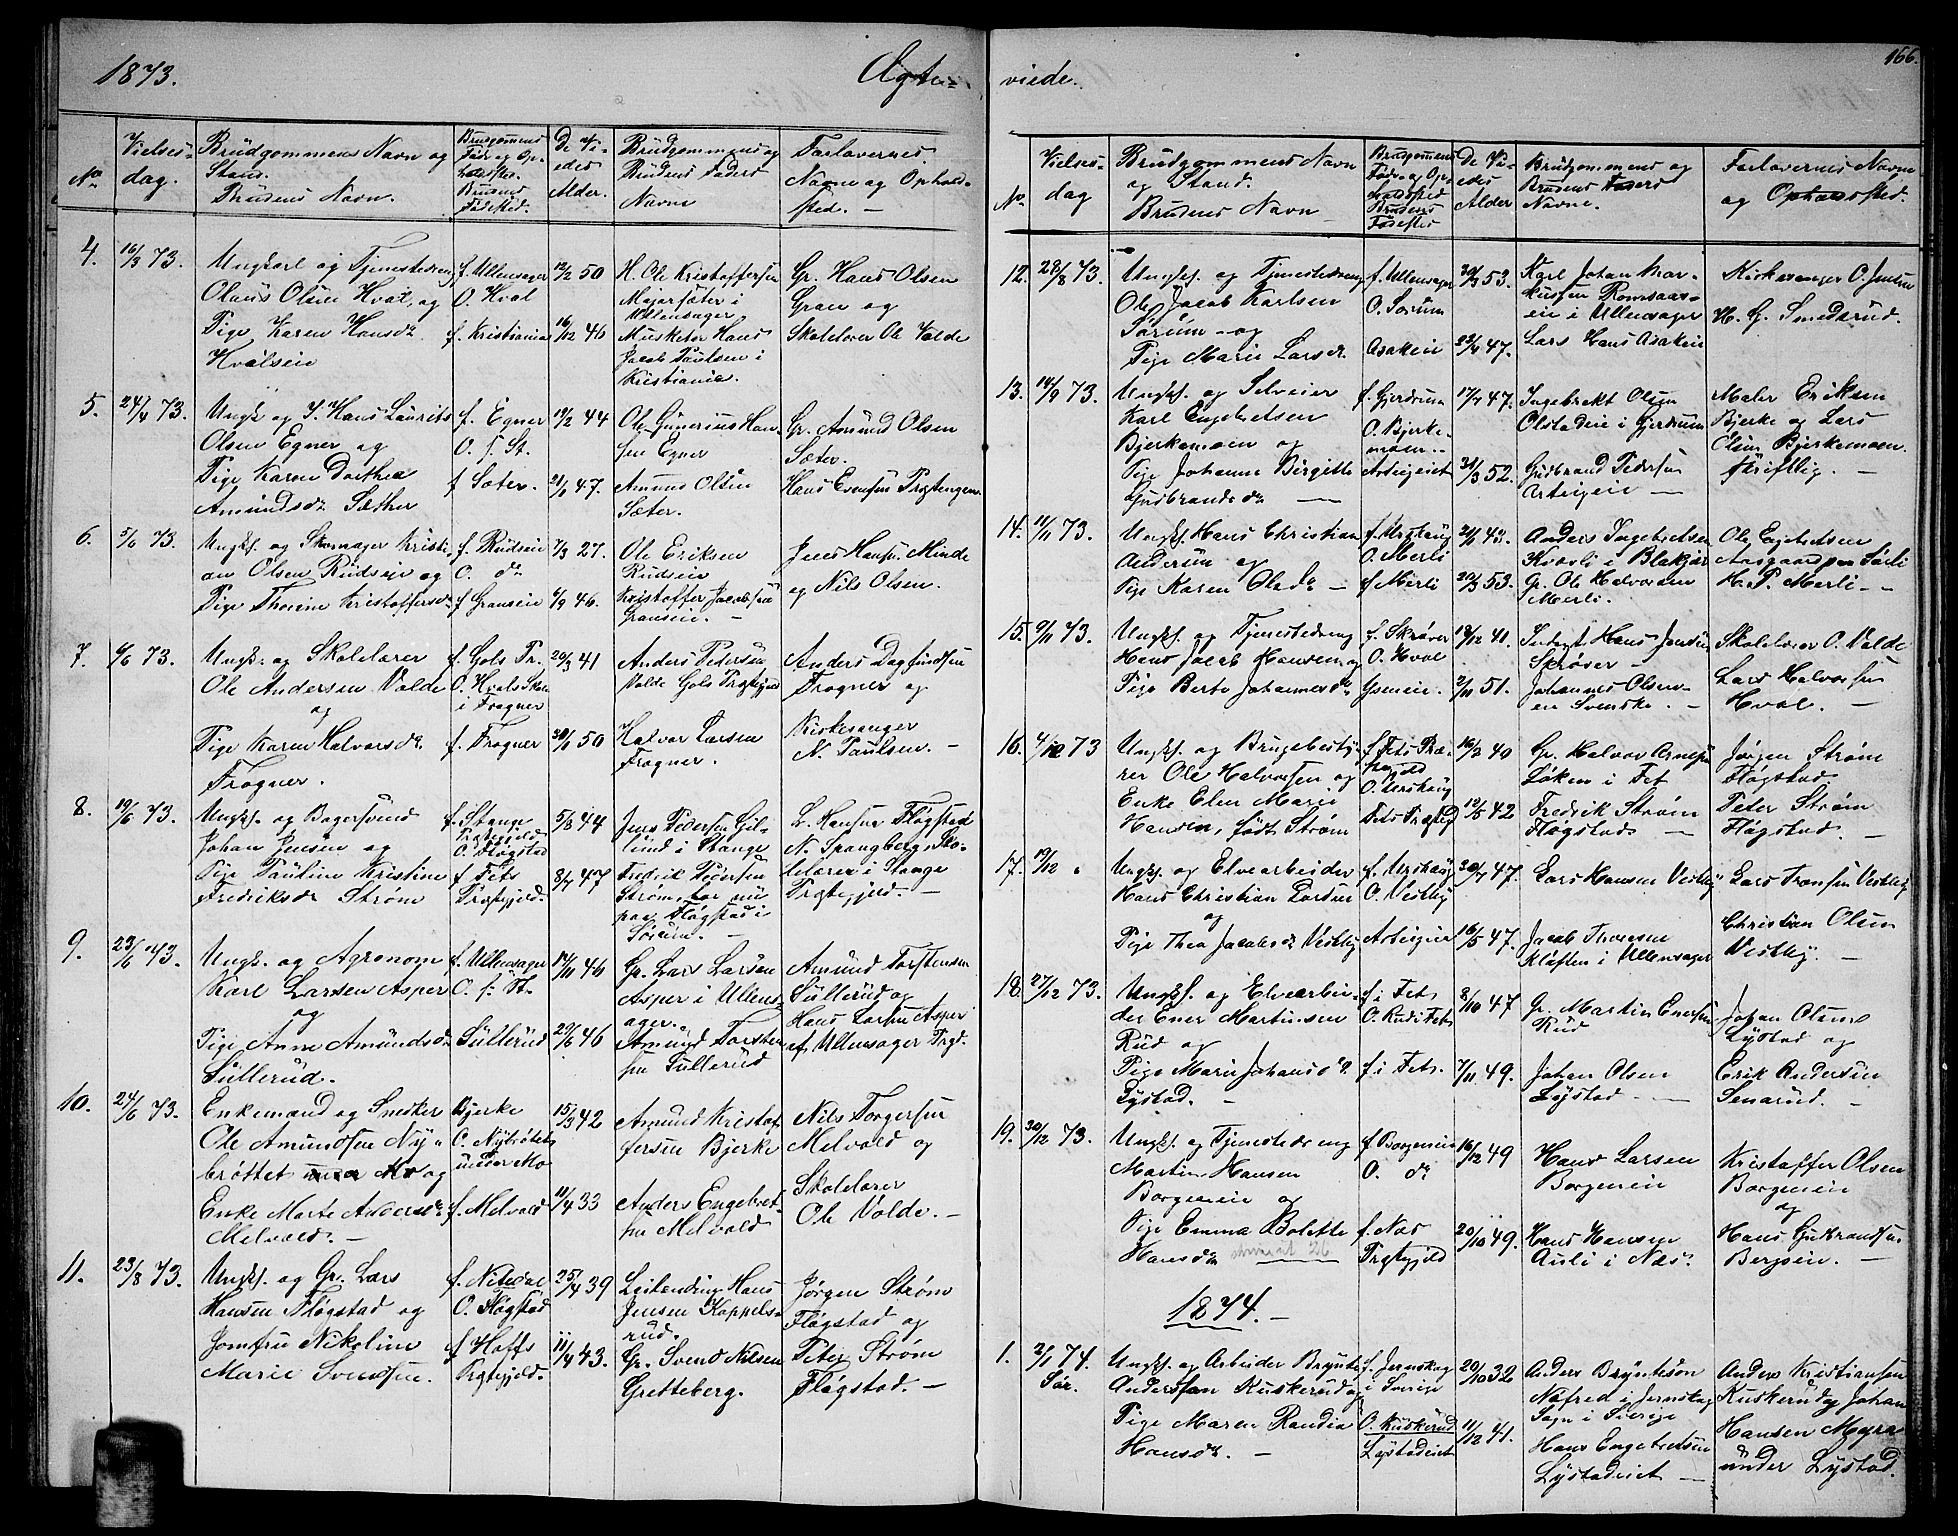 1873.
Ægte-
viede.
166.
No
Vielses-
dag.
Brudgommens Navn og
Stand.
Brudens Navn.
Brudgommens
Føde og Op-
holdssted.
Brudens
Fødested.
De Vi-
edes
Alder.
Brudgommens og
Brudens Faders
Navne
Forlovernes
Navne og Ophold-
sted. —
4.
16/3 73.
Ungkarl og Tjenestedreng
Olaus Olsen Hval, og
Pige Karen Hansdr
Hvalseie
f. Ullensager
O. Hval
f. Kristiania
12/2 50
16/12 46
H. Ole Kristoffersen
Mejersæter i
Ullensager
Musketer Hans
Jacob Paulsen i
Kristiania.
Gr. Hans Olsen
Gran og
Skolelærer Ole Valde
5.
24/4 73.
Ungk. og S. Hans Laurits
Olsen Egner og
Pige Karen Dorthea
Amundsdr Sæther
f. Egner
O. s. St.
f Sæter.
19/2 44
21/1 47.
Ole Gunerius Han-
sen Egner
Amund Olsen
Sæter.
Gr. Amund Olsen
Sæter.
Hans Evensen Prestengen
6.
5/6 73.
Ungk. og Skomager Kristi-
an Olsen Rudseie og
Pige Thorine Kristoffersdr
f. Rudseie
O. do
f Granseie
7/3 27.
6/9 46.
Ole Eriksen
Rudseie
Kristoffer Jacobsen
Granseie. —
Jens Hansen Minde
og Nils Olsen.
7.
6/6 73.
Ungk. og Skolelærer
Ole Andersen Valde
og
Pige Karen Halvorsdr
Frogner.
f. Gols Pr.
O. Hvals Skole
i Frogner
f. Frogner
20/3 41
30/1 50
Anders Pedersen
Valde Gols Prstgjeld
Halvor Larsen
Frogner.
Anders Dagfindsen
Frogner og
Kirkesanger
N. Paulsen. —
8.
19/6 73.
Ungk. og Bagersvend
Johan Jensen og
Pige Pauline Kristine
Fredriksdr Strøm
f. Stange
Prstegjeld
O. Fløgstad
f. Fets
Prstgjeld.
5/8 44
8/7 47
Jens Pedersen Gil-
lund i Stange
Fredrik Pedersen
Strøm, bor nu
paa Fløgstad i
Sørum. —
L. Hansen Fløgstad
N. Spangberg, Sko-
lelærer i Stange
Prstgjeld. —
9.
23/6 73.
Ungk. og Agronom
Karl Larsen Asper
og
Pige Anne Amundsdr
Sullerud.
f. Ullensager
O. s. St.
Sullerud
14/11 46
29/6 46
Gr. Lars Larsen
Asper i Ullens-
ager.
Amund Torsten-
sen Sullerud
Amund Torstensen
Sullerud og
Hans Larsen Asper
af Ullensager Prgd.
10.
24/6 73.
Enkemand og Snekker
Ole Amundsen Ny-
brøttet under Mo og
Enke Marte Andersdr
Melvold. —
Bjerke
O. Nybrøttet
under Mo
f. Melvold
15/3 42
11/4 33
Amund Kristof-
fersen Bjerke
Anders Engebret-
sen Melvold
Nils Torgersen
Melvold og
Skolelærer
Ole Valde. —
11.
23/8 73.
Ungk. og Gr. Lars
Hansen Fløgstad og
Jomfru Nikoline
Marie Svendsen.
f. Nitedal
O. Fløgstad
f Hoffs
Prstgjeld.
25/4 39
11/4 43.
Leilending Hans
Jensen Kappels-
rud.
Gr. Svend Nilsen
Gretteberg.
Jørgen Strøm
Fløgstad og
Peter Strøm
Fløgstad. —
No
Vielses
dag
Brudgommens Navn
og Stand.
Brudens Navn
Brudgommens
Føde- og Op-
holdssted
Brudens
Fødested
De Vi-
edes
Alder
Brudgommens og
Brudens Faders
Navne.
Forlovernes Navne
og Opholdssted.
12.
28/8 73.
Ungk. og Tjenestedreng
Ole Jacob Karlsen
Sørum og
Pige Marie Larsdr
f. Ullensager
O. Sørum
Asakeie
30/3 53.
23/4 47.
Karl Johan Mar-
kussen Romsaas-
eie i Ullensager
Lars Hans Asakeie
Kirkesanger O. Jensen
H. G. Smedsrud.
13.
14/9 73.
Ungk. og Selveier
Karl Engebretsen
Bjerkemoen og
Pige Johanne Birgitte
Gudbrandsdr
f. Gjerdrum
O. Bjerke-
moen.
Arteigeiet
17/7 47.
31/3 52.
Ingebrekt Olsen
Olstadeie i Gjerdrum
Gudbrand Pedersen
Arteigeie —
Maler Eriksen
Bjerke og Lars
Olsen Bjerkemoen.
skriftlig. —
14.
11/11 73.
Ungk. Hans Christian
Andersen og
Pige Karen Olesdr —
f. Urskoug
O. Merli
f. Merli
21/11 43.
20/3 53.
Anders Ingebretsen
Kvevli i Blakjær
Gr. Ole Halvorsen
Merli.
Ole Engebretsen
Aasgaard paa Sørli
H. P. Merli. —
15.
9/11 73.
Ungk. og Tjenestedreng
Hans Jacob Hansen og
Pige Berte Johannesdr
f. Skrøver
O. Hval
Ijseneie.
19/12 41.
2/11 51.
Inderst Hans Jensen
Skrøver —
Johannes Olsen
en Svenske. —
Skolelærer O. Valde
Lars Halvorsen
Hval. —
16.
4/12 73
Ungk. og Brugsbesty-
rer Ole Halvorsen og
Enke Elen Marie
Hansen, født Strøm
f. Fets Præ-
stegjeld
O. Urskoug
Fets Prstgj
16/2 40
12/5 42
Gr. Halvor Arnesen
Løken i Fet
Fredrik Strøm
Fløgstad —
Jørgen Strøm
Fløgstad.
Peter Strøm
Fløgstad. —
17.
19/12 "
Ungk. og Elvearbeider
Hans Christian Larsen
og
Pige Thea Jacobsdr Vestby
f. Urskoug
O. Vestby
Arteigeie
30/7 47.
16/5 47.
Lars Hansen Vestby
Jacob Thoresen
Kløften i Ullensager
Lars Fransen Vestby
Christian Olsen
Vestby. —
18.
27/12 73.
Ungk. og Elvearbei-
der Ener Martinsen
Rud og
Pige Marie Johansdr.
Lystad. —
f. i Fet.
O. Rud i Fet.
f. i Fet.
8/10 47
7/11 49.
Gr. Martin Enersen
Rud
Johan Olsen
Lystad —
Johan Olsen
Lystad og
Erik Andersen
Senerud. —
19.
30/12 73.
Ungk. og Tjenestedreng
Martin Hansen
Borgeneie og
Pige Emma Bolette
Hansdr
f. Borgeneie
O. do
f. Næs
Prstgjeld
16/12 49
20/10 49.
Hans Larsen
Borgeneie
Hans Hansen
Auli i Næs.
Kristoffer Olsen
Borgeneie
og
Hans Gudbrandsen
Bergseie. —
1874. —
1.
2/1 74.
Sør.
Ungk. og Arbeider Brynte
Anderssen Kuskerud og
Pige Maren Randia
Hansdr. —
f. Jernskog
i Sverige
O. Kuskerud
Lystadeiet
29/10 32
11/12 41.
Anders Bryntesøn
Nafred i Jernskog
Sogn i Sverige
Hans Engebretsen
Lystadeiet —
Anders Kristiansen
Kuskerud og Johan
Hansen Myra
under Lystad.